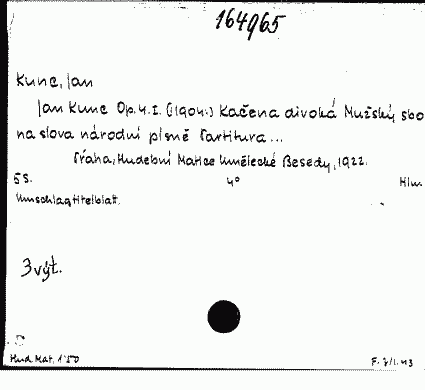 164965
Kunc, Jan
Jan Kunc Op. 4. I. (1904.) Kačena divoká Mužský sbo
na slova národní písně Partitura...
Praha, Hudební Matice Umělecké Besedy, 1922.
5 S. 4° Hlm
Umschlagtitelblatt.
3 výt.
Hud. Mat. 1'50